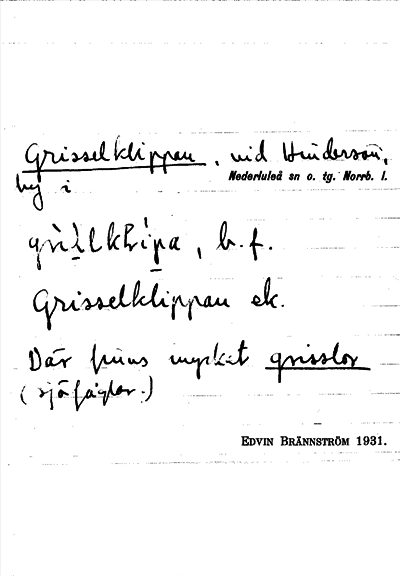 Grisselklippan, vid Hindersön,
by i Nederluleå sn o. tg. Norrb. l.
b. f.
Grisselklippan ek.
Där finns mycket grisslor
(sjöfåglar.)
EDVIN BRÄNNSTRÖM 1931.